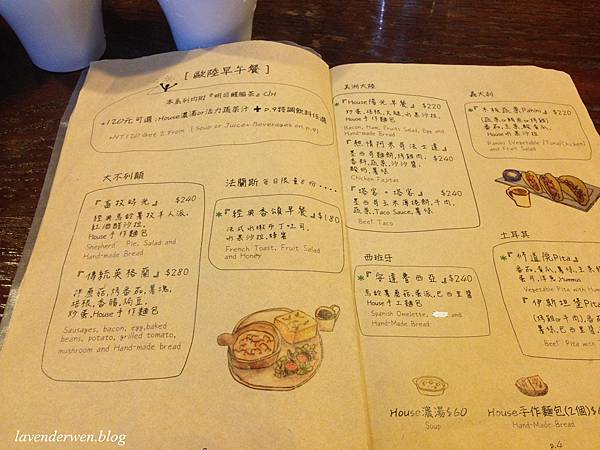 [ 歐陸早午餐 ]
本系列均附『明日鱷腦茶』C/H
+120元可選:House濃湯or活力蔬菜汁 + p.9特調飲料任選
+NT120 Get 2 From ( Soup or Juice+ Beverages on p.9)
大不列顛
『畜牧時光』 $240
經典馬鈴薯牧羊人派,
紅酒醋沙拉,
House手作麵包
Shepherd' Pie, Salad and
Hand-made Bread
『傳統英格蘭』 $280
洋菇, 烤番茄, 薯塊,
培根, 香腸, 焗豆,
炒蛋, House手作麵包
Sausages, bacon, egg,baked
beans, potato, grilled tomato,
mushroom and Hand-made bread
法蘭斯 每日限量8份....
*『經典香頌早餐』$180
法式水嫩布丁吐司,
水果沙拉, 蜂蜜
French Toast, Fruit Salad
and Honey
美洲大陸
『House陽光早餐』 $220
炒蛋, 培根, 火腿, 水果沙拉,
House手作麵包
Bacon, Ham, Fruits Salad, Egg and
Handmade Bread
『熱情阿米哥法士達』
墨西哥麵餅, 烤雞肉, $240
香料, 蔬果, 沙沙醬,
酸奶, 薯條
Chicken Fajitas
『塔客‧塔客』 $240
墨西哥玉米薄捲餅, 牛肉,
蔬果, Taco Sauce, 薯條
Beef Taco
西班牙
*『安達魯西亞』 $240
馬鈴薯蘑菇, 蛋派, 巴里醬
House手工麵包
Spanish Omelette, and
Hand-Made Bread
House濃湯 $60
Soup
義大利
*『木板蔬果Panini』 $220
番茄, 生菜, 酸黃瓜,
House水果沙拉
Panini (Vegetable /Tuna/Chicken)
and Fruit Salad
土耳其
Pita』
番茄, 黃瓜, 薯條, 生菜,
Hummus
Vegetable Pita with Hum
『伊斯坦堡Pita
(烤雞or牛肉), 番
薯條, 巴西里醬
Beef Pita with
House手作麵包(2個) $
Hand-Made Bread
p.4
lavenderwen.blog